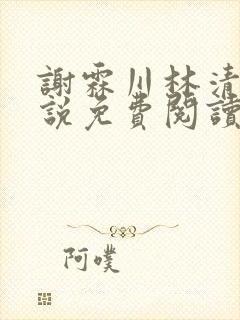 謝霖川林清
說免費閱讀
阿噗